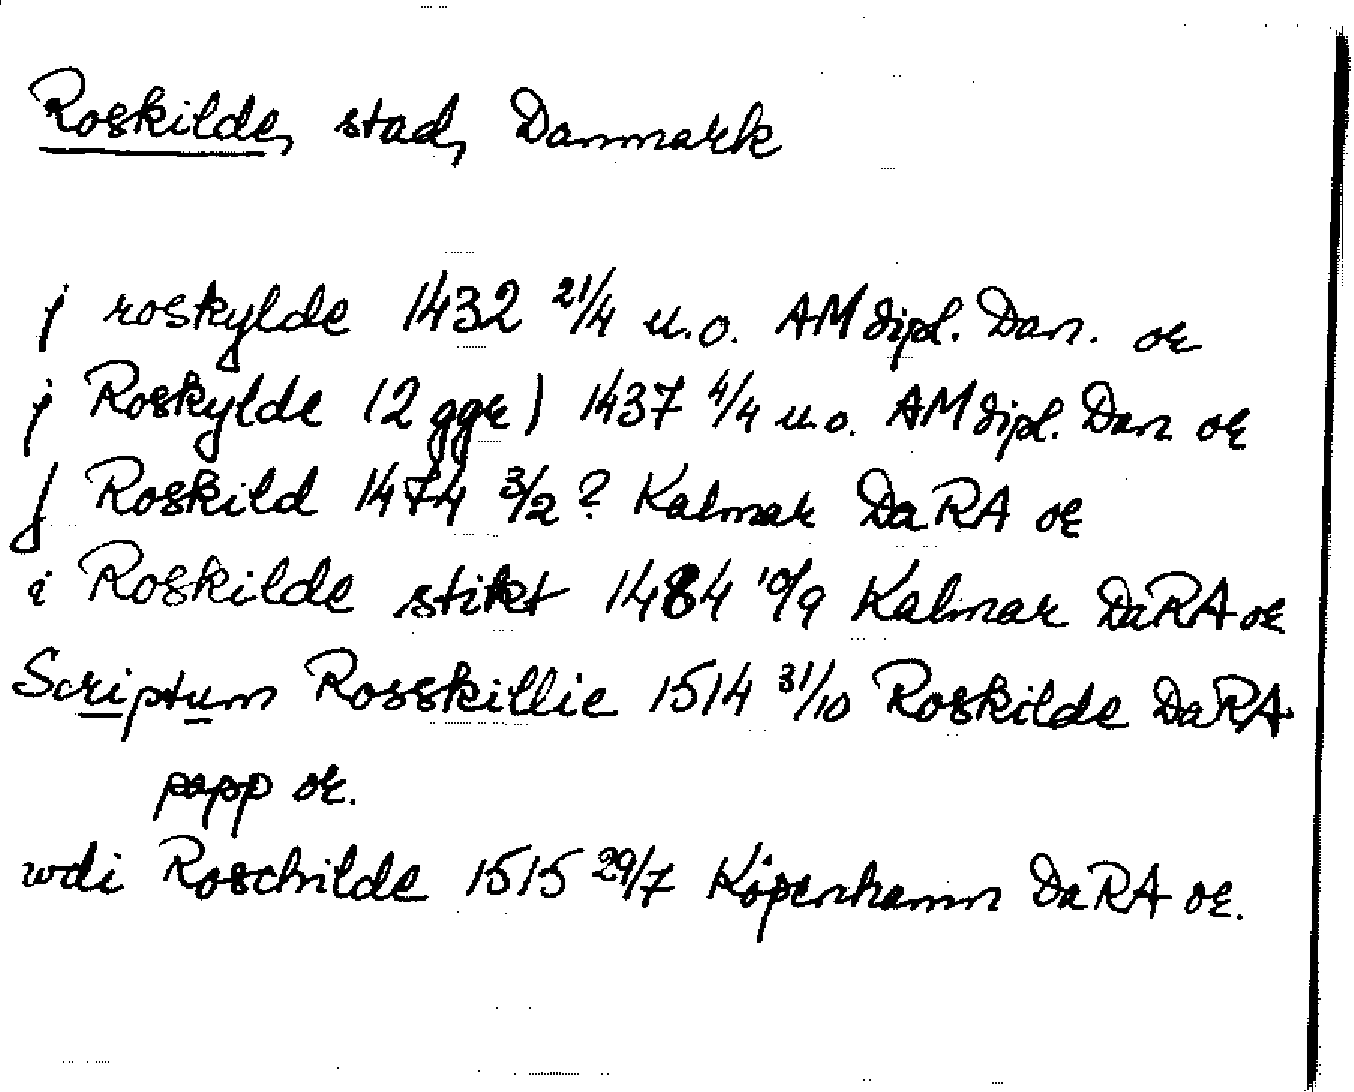 Roskilde, stad, Danmark
j roskylde 1432 21/4 u.o. AM dipl. Dan. or
j Roskylde (2 ggr) 1437 4/4 u.o. AM dipl. Dan or
j Roskild 1474 3/2? Kalmar DaRA or
i Roskilde stikt 1484 10/9 Kalmar DaRA or
Scriptum Rosskillie 1514 31/10 Roskilde DaRA
papp or.
wdi Roschilde 1515 29/7 Köpenhamn DaRA or.